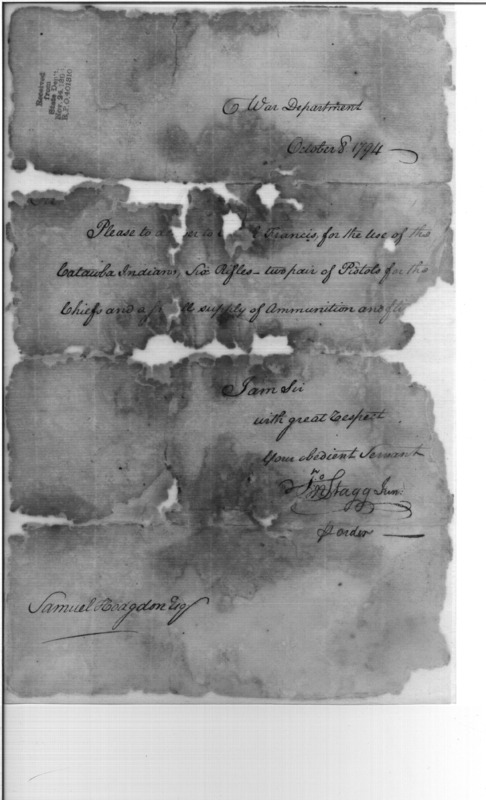 Received
from
State Dept.
War Department
October 8 1794
Please to Francis, for the use of the
Catauba Indians, Six Rifles - two pair of Pistols for the
Chiefs and a supply of Ammunition and
I am Sir
with great respect
Your obedient Servant
Jno Stagg Junr
p order
Samuel Hodgdon Esq